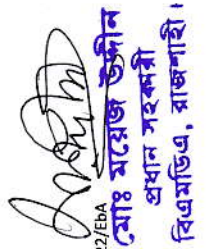 22/EbA
মোঃ ময়েজ উদ্দীন
প্রধান সহকারী
বিএমডিএ, রাজশাহী।